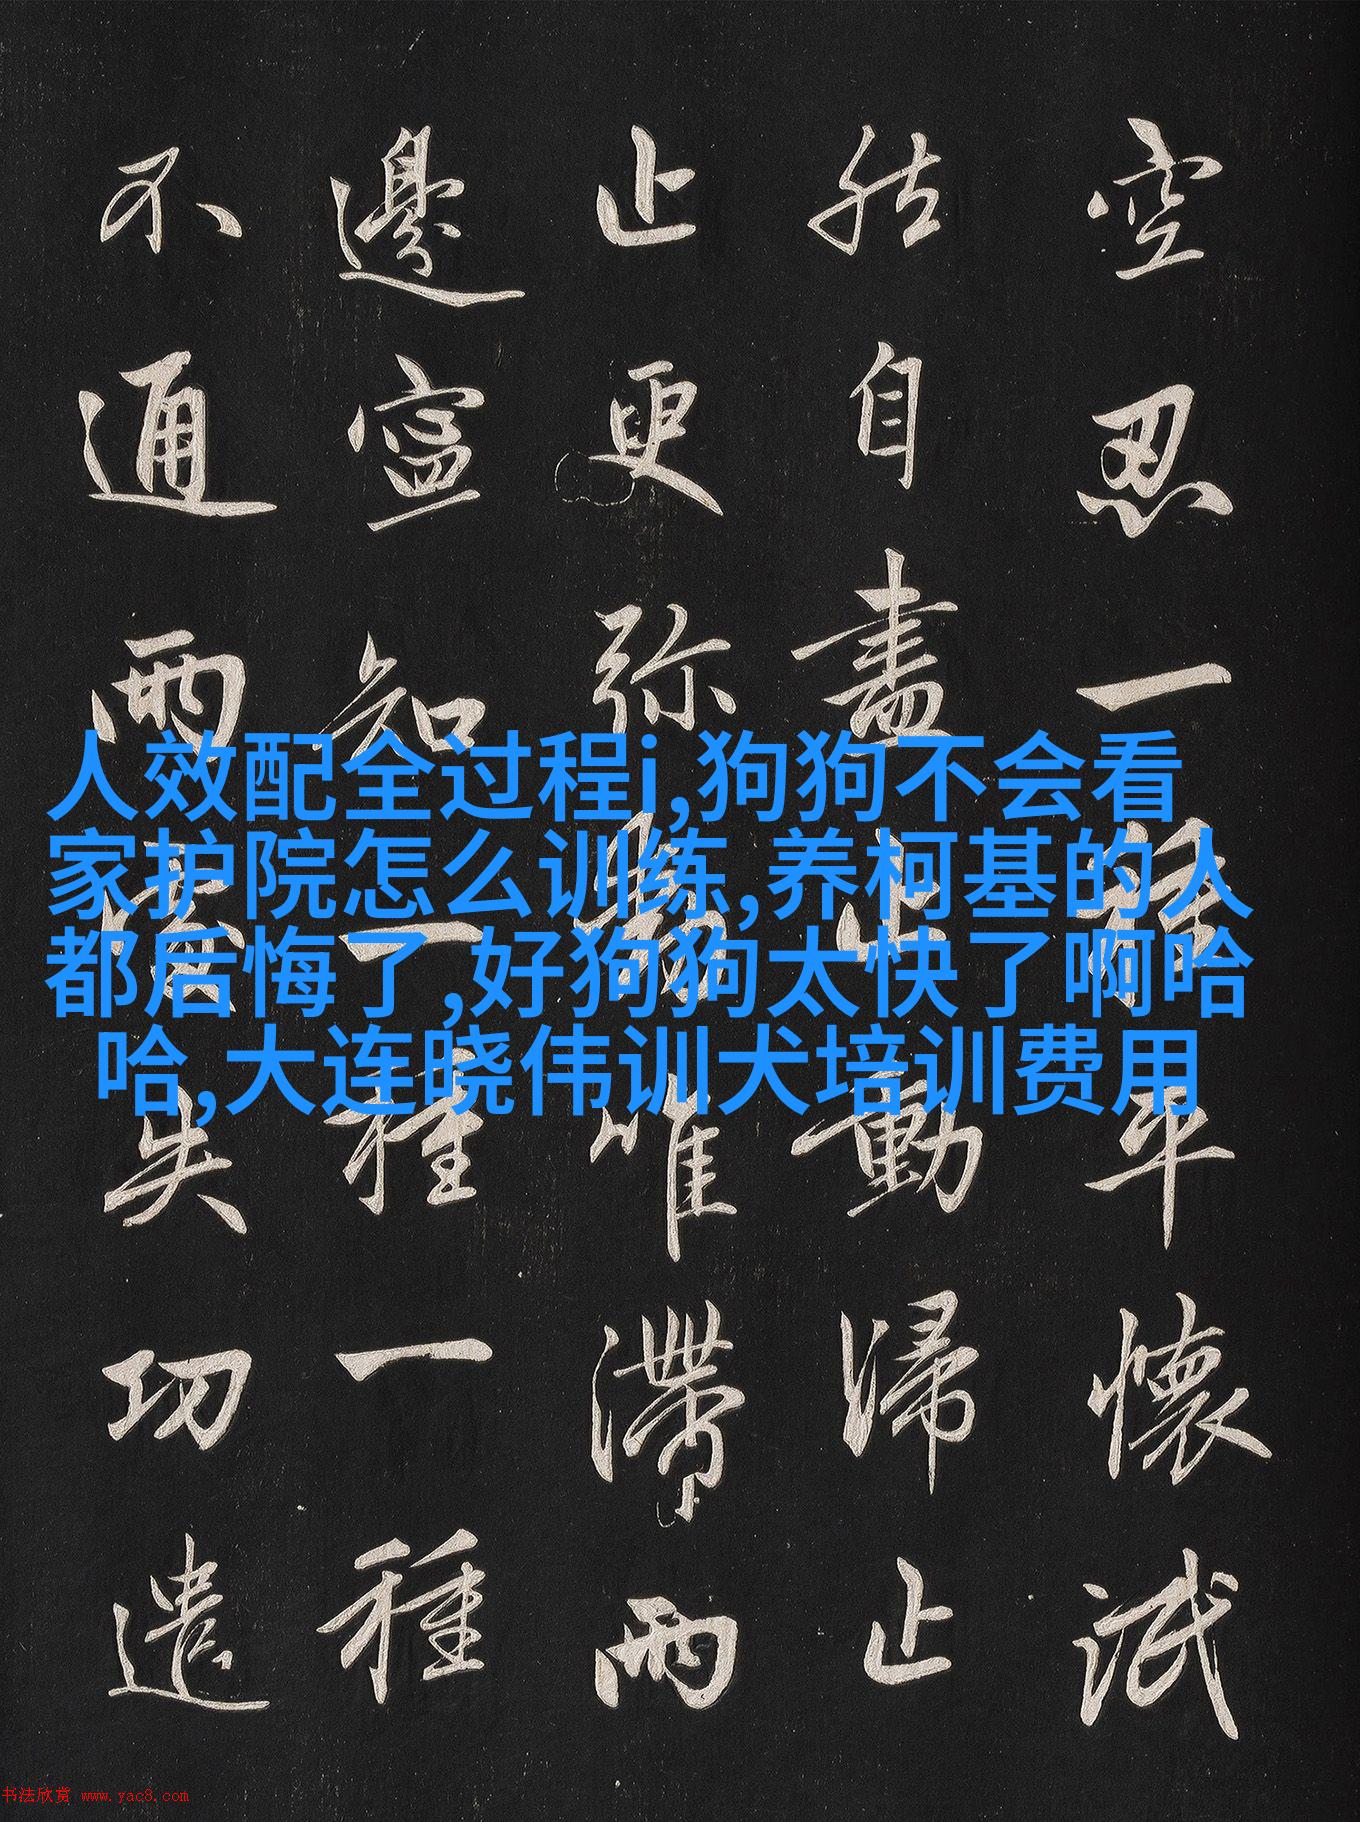 空忍一種平懷泯
然自盡止動歸止
止更弥動唯滯兩
邊寧知一種一種
不通兩處失功遣
人效配全过程i,狗狗不会看
家护院怎么训练,养柯基的人
都后悔了,好狗狗太快了啊哈
哈,大连晓伟训犬培训费用
书法欣赏 www.yac8.com